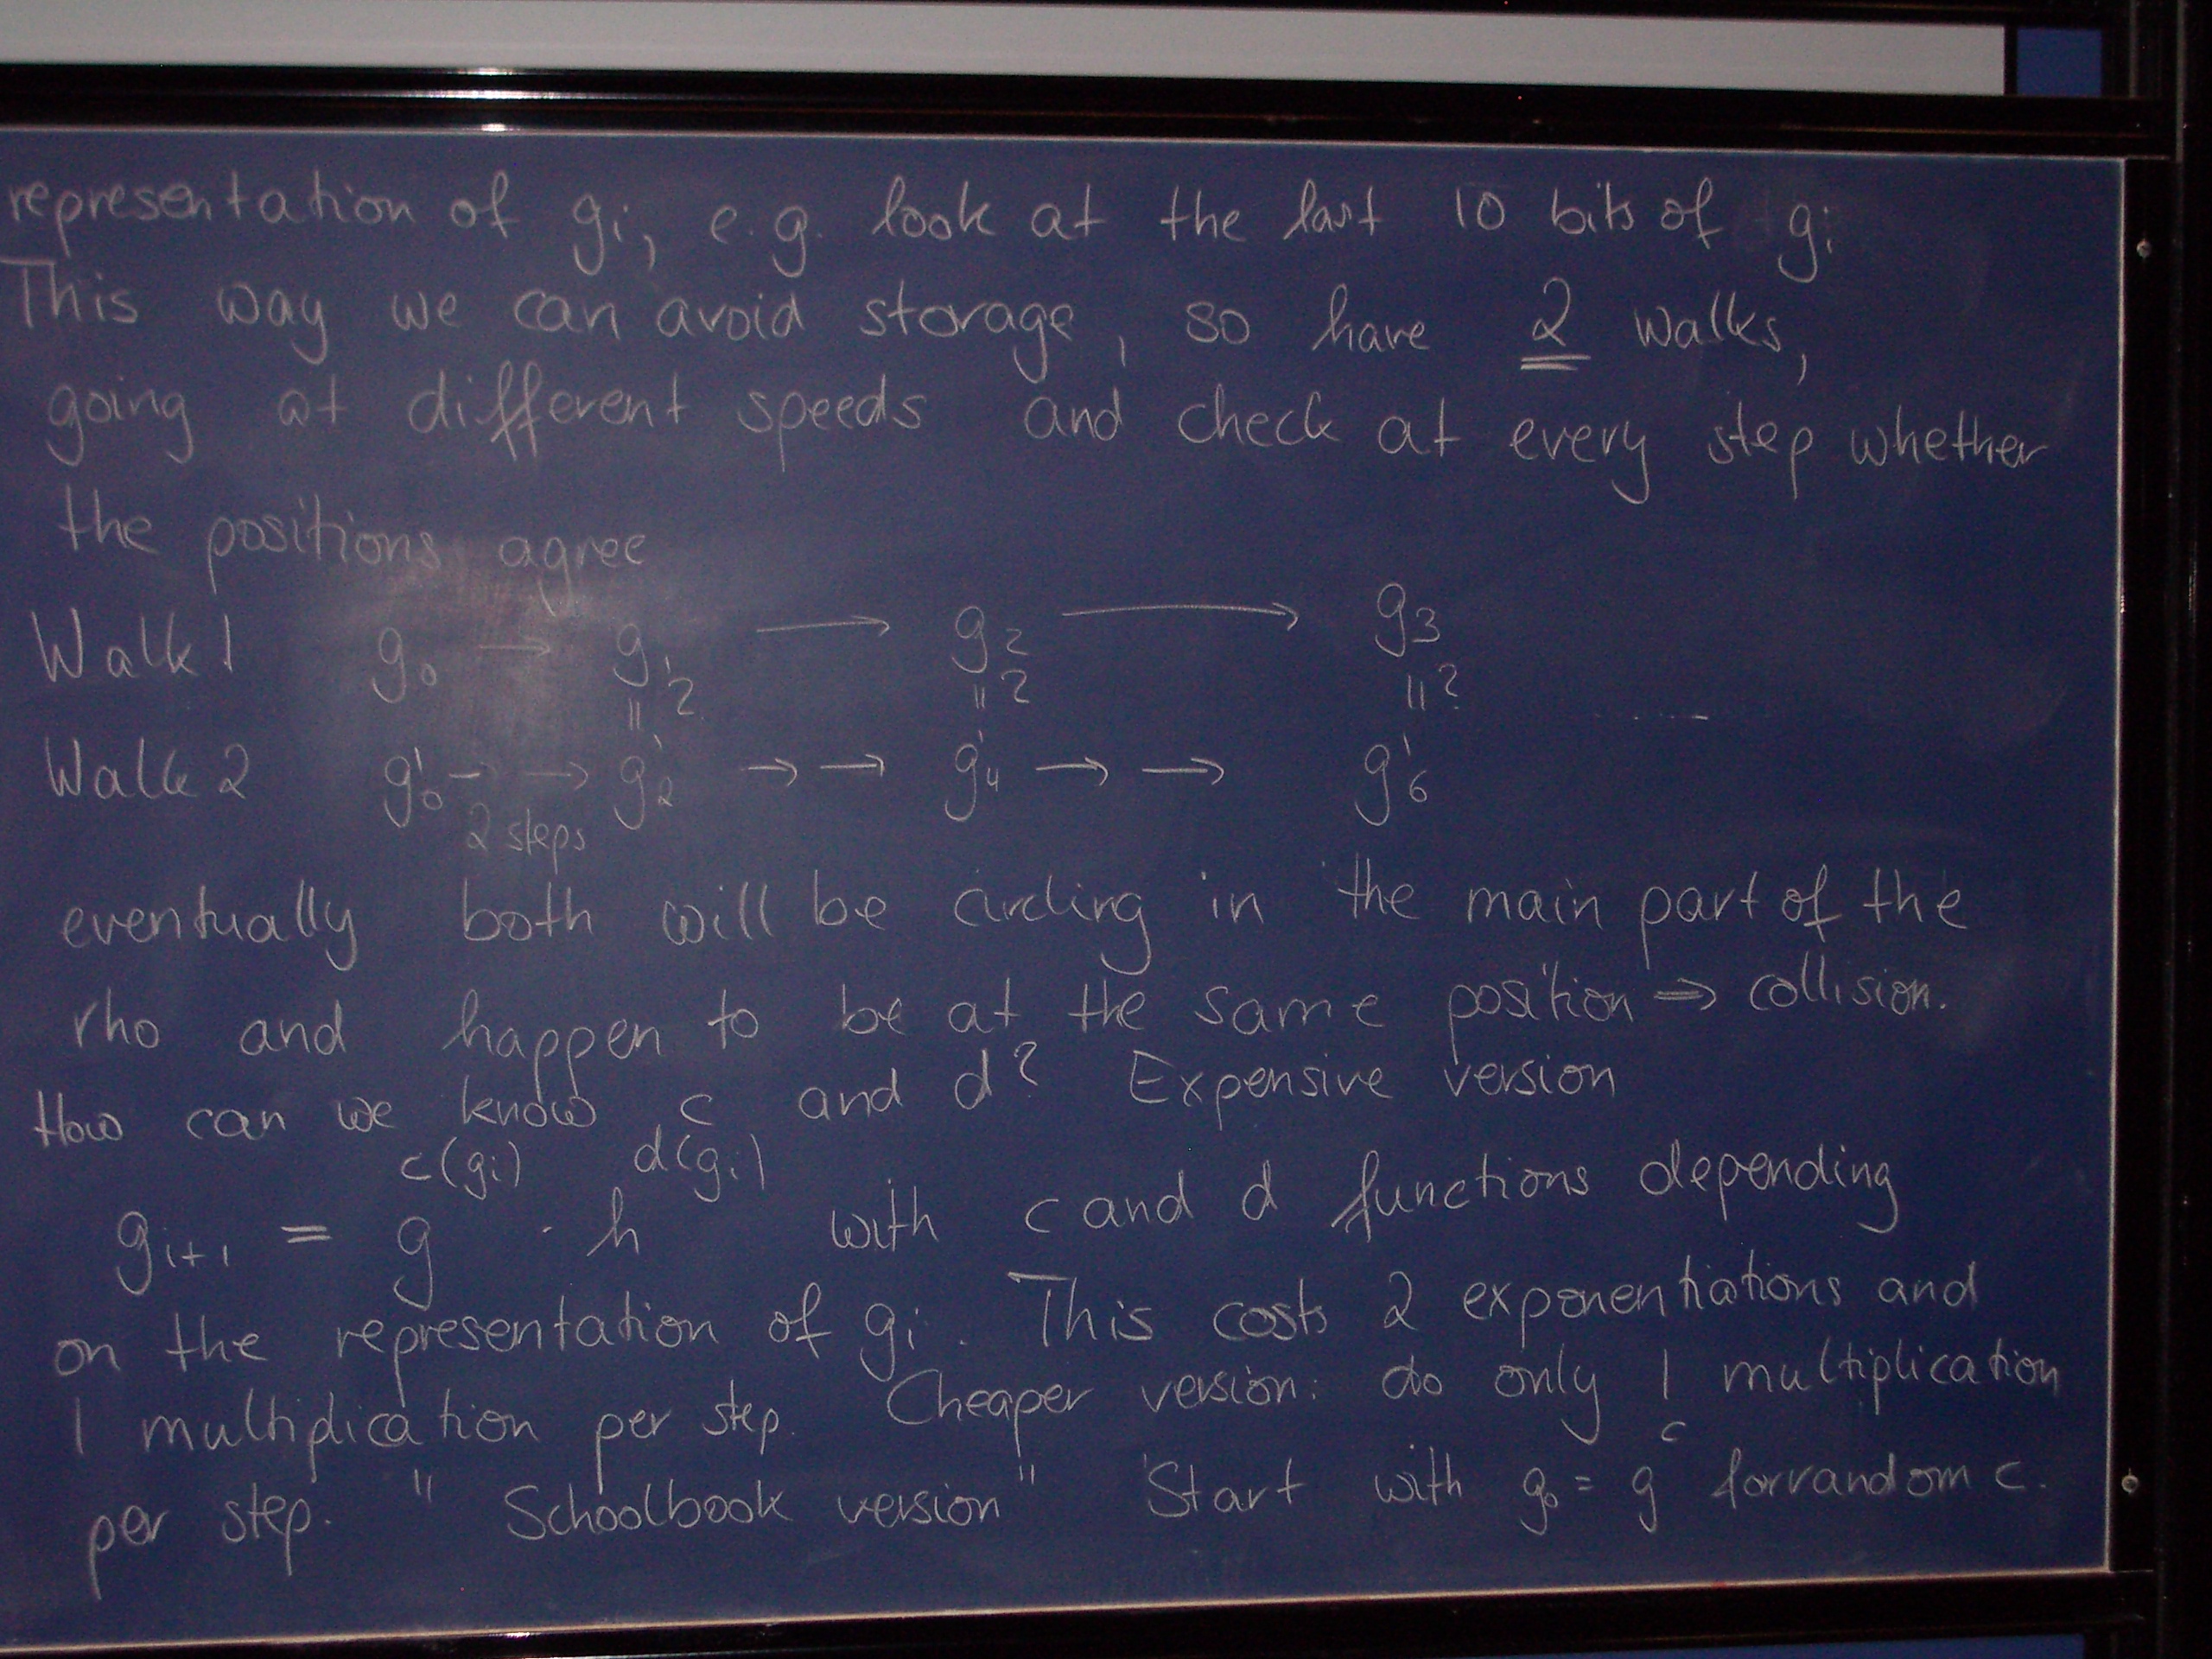 representation of gi, e.g. look at the last 10 bits of gi
This way we can avoid storage, so have 2 walks,
going at different speeds and check at every step whether
the positions agree
Walk 1 g₀ → g₁ → g₂ → g₃
॥? ॥? ॥? .....
Walk 2 g'₀ → → g'₂ → → g'₄ → → g'₆
2 steps
eventually both will be circling in the main part of the
rho and happen to be at the same position ⇒ collision.
How can we know c and d? Expensive version
c(gi) d(gi)
gi+1 = g · h with c and d functions depending
on the representation of gi. This costs 2 exponentiations and
1 multiplication per step. Cheaper version: do only 1 multiplication
per step. "Schoolbook version" Start with g₀ = g^c for random c.